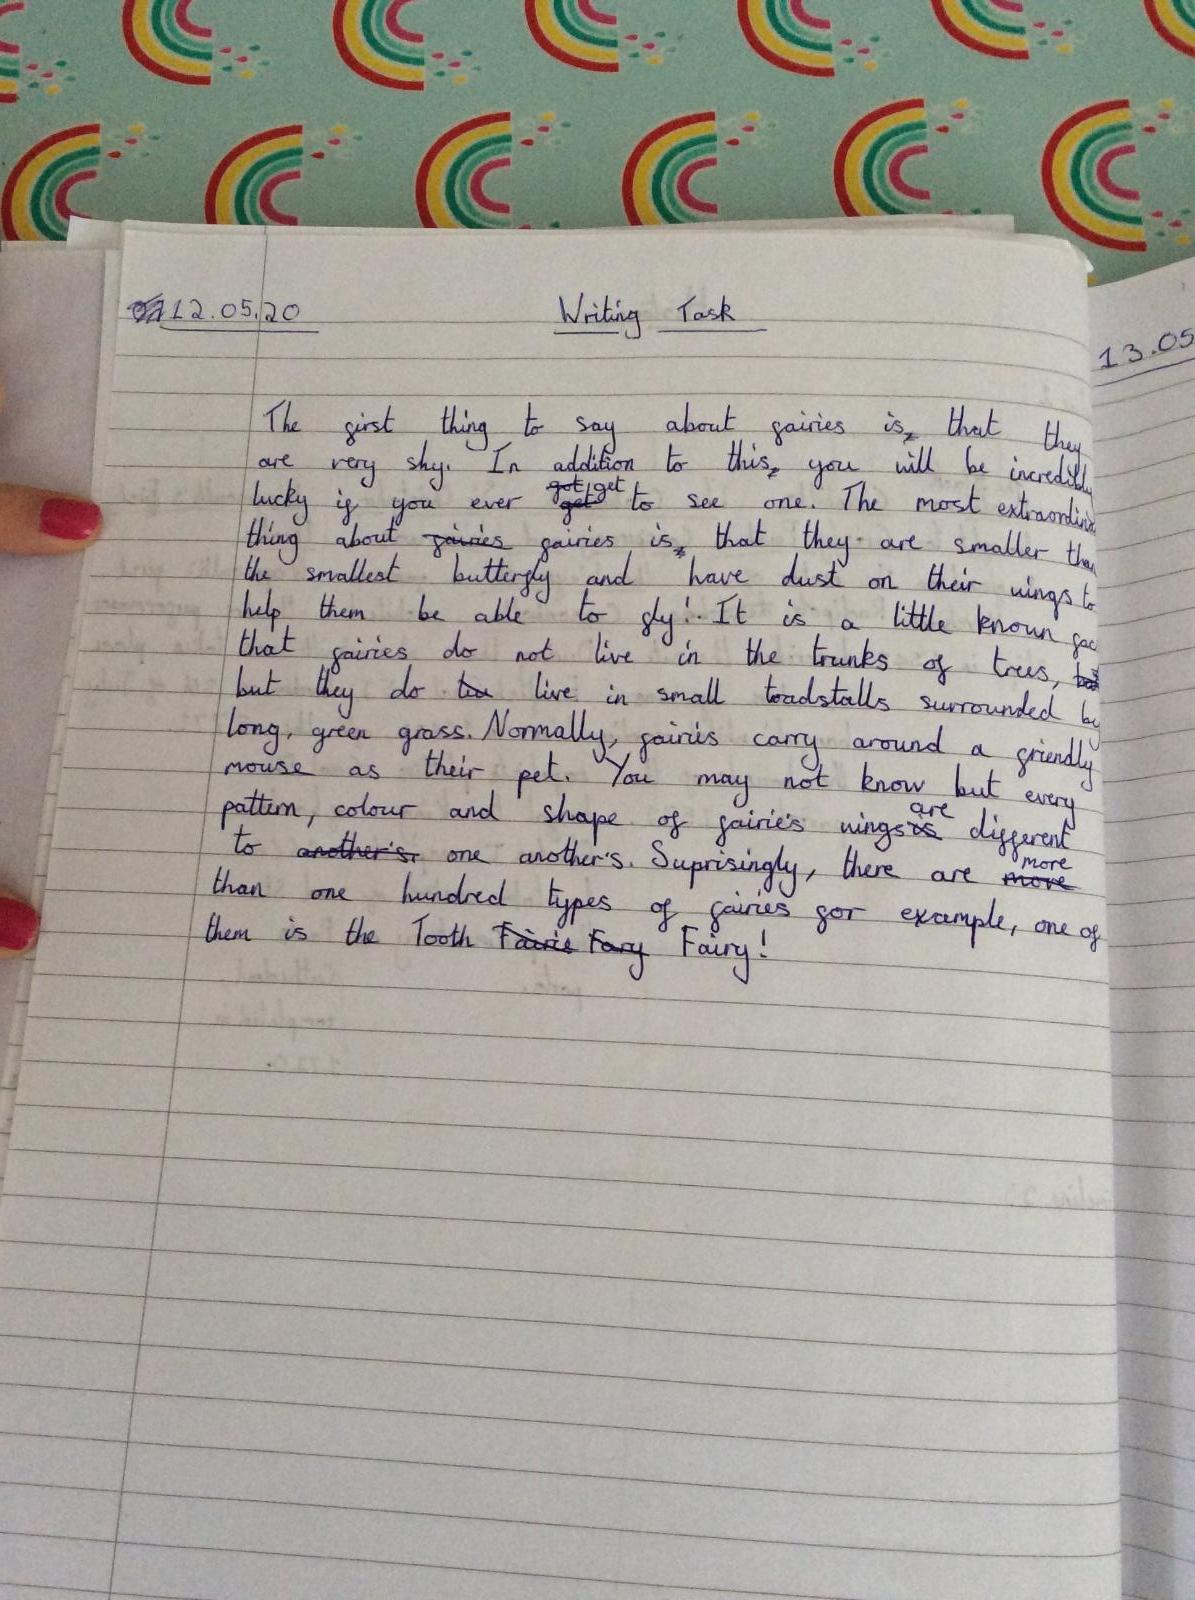 12.05.20 Writing Task
13.05
The first thing to say about fairies is, that they
are very shy. In addition to this, you will be incredibly
lucky if you ever got/get get to see one. The most extraordinary
thing about fairies fairies is, that they are smaller than
the smallest butterfly and have dust on their wings to
help them be able to fly! It is a little known fac
that fairies do not live in the trunks of trees,
but they do live in small toadstalls surrounded by
long, green grass. Normally, fairies carry around a friendly
mouse as their pet. You may not know but every
pattern, colour and shape of fairie's wings is are different
to another's. one another's. Suprisingly, there are move more
than one hundred types of fairies for example, one of
them is the Tooth Fairie Fary Fairy!